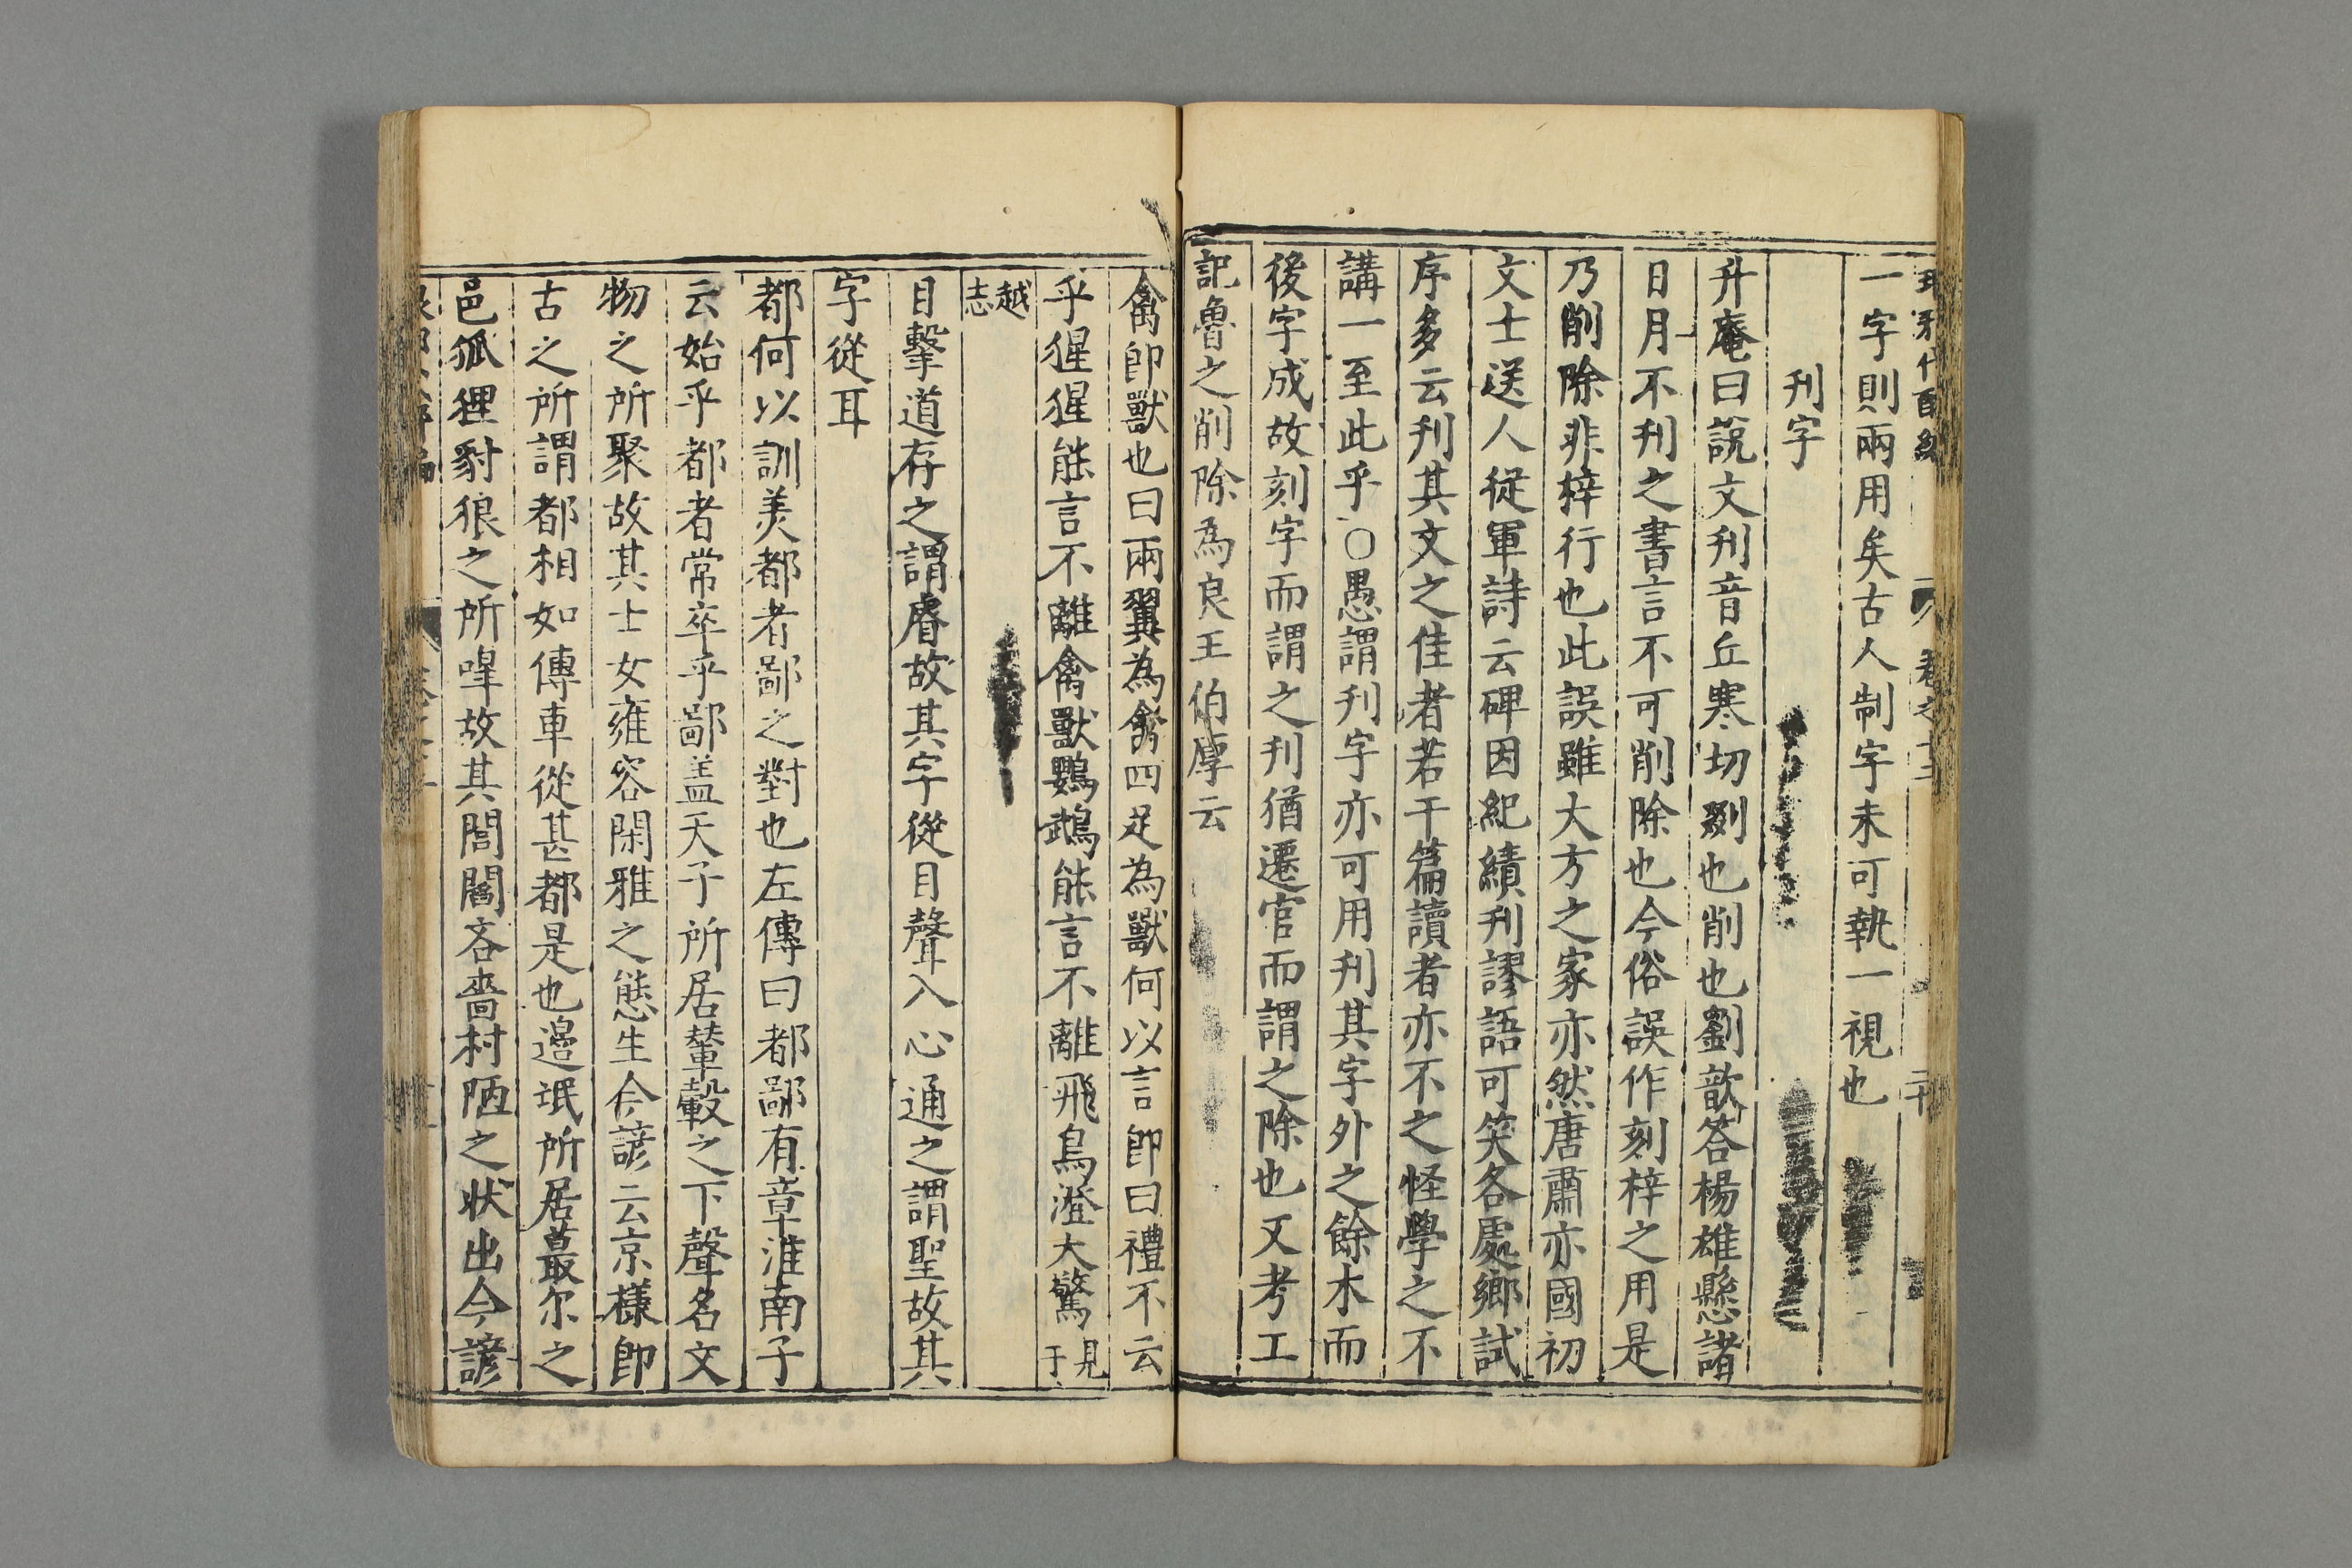 一字則兩用矣古人制字未可執一視也
刋字
升庵曰說文刋音丘寒切剟也削也劉歆答楊雄懸諸
日月不刋之書言不可削除也今俗誤作刻梓之用是
乃削除非梓行也此誤雖大方之家亦然唐肅亦國初
文士送人從軍詩云碑因紀績刋謬語可笑各處鄉試
序多云刋其文之佳者若干篇讀者亦不之怪學之不
講一至此乎○愚謂刋字亦可用刋其字外之餘木而
後字成故刻字而謂之刋猶遷官而謂之除也又考工
記魯之削除為良王伯厚云
禽即獸也曰兩翼為禽四足為獸何以言即曰禮不云
乎猩猩能言不離禽獸鸚鵡能言不離飛鳥澄大驚見于
越志
目擊道存之謂睿故其字從目聲入心通之謂聖故其
字從耳
都何以訓美都者鄙之對也左傳曰都鄙有章淮南子
云始乎都者常卒乎鄙盖天子所居輦轂之下聲名文
物之所聚故其士女雍容閑雅之態生今諺云京樣即
古之所謂都相如傳車從甚都是也邉氓所居蕞尔之
邑狐狸豺狼之所嘷故其閭閻吝嗇村陋之狀出今諺